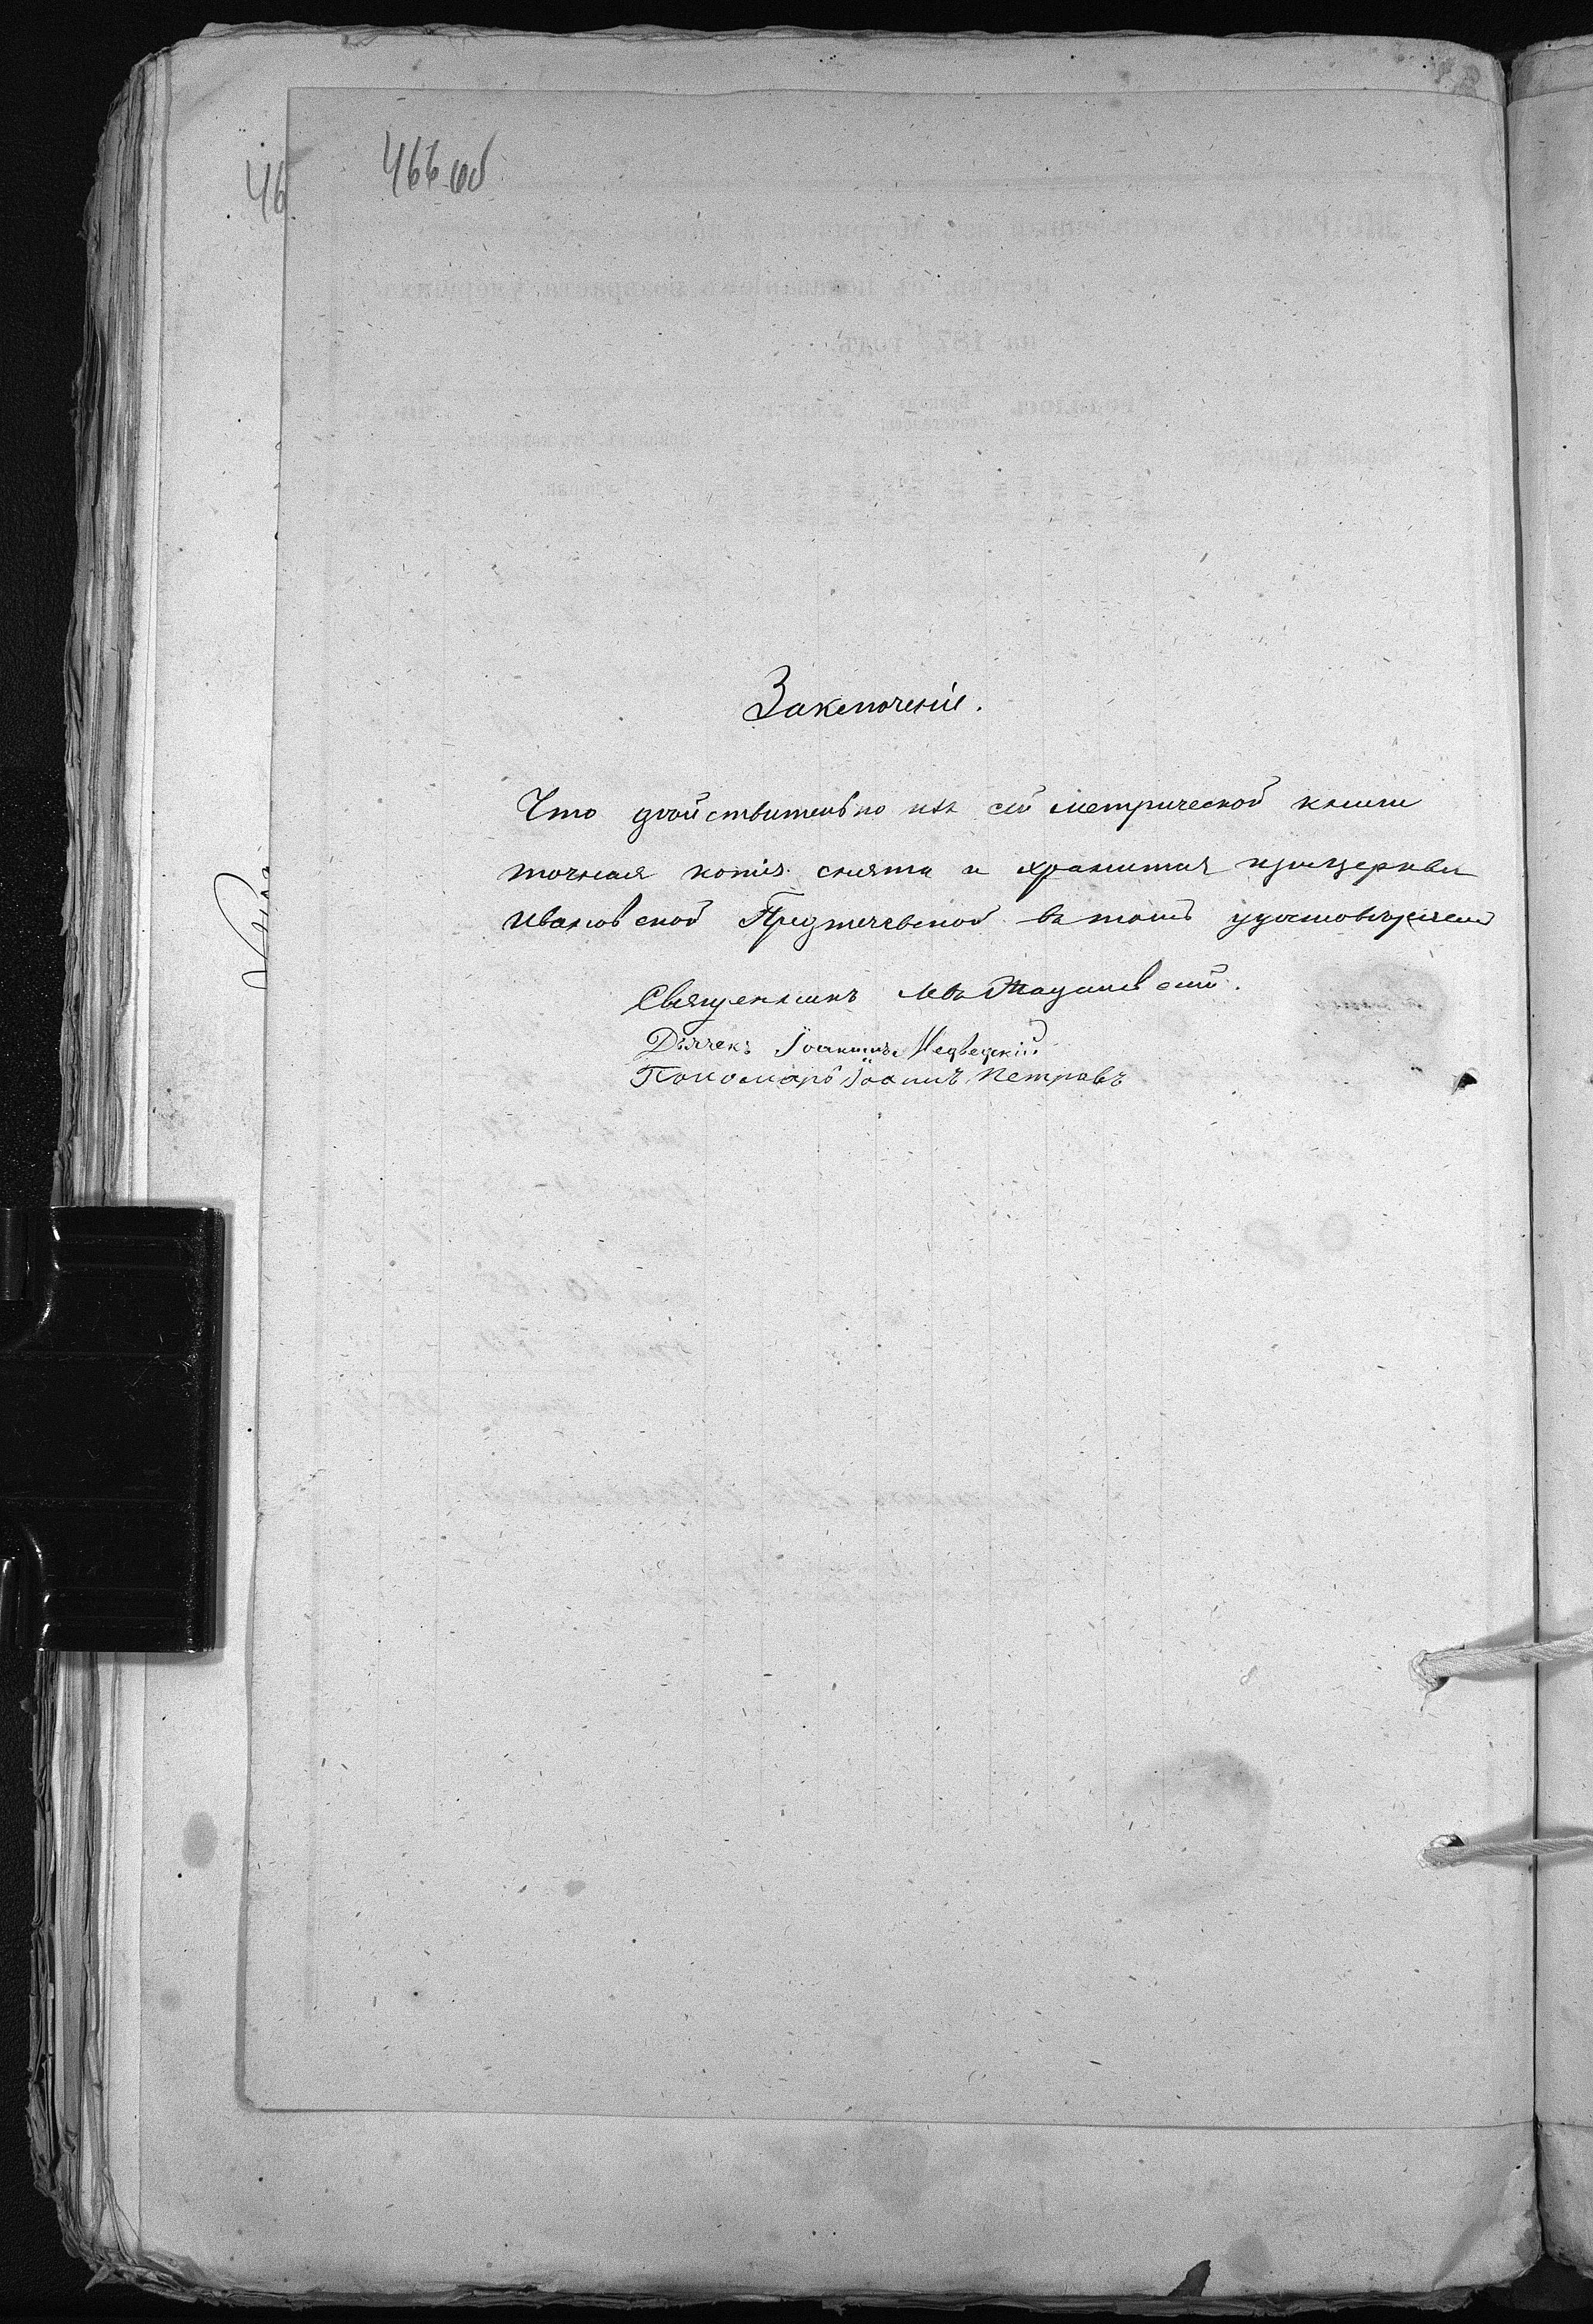 466 об
46
Заключеніе.
Что дѣйствительно изъ сей метрической книги
точная копія снята и хранится при церкви
Ивановской Предтечевской въ томъ удостовѣряемъ
Священникъ Левъ
Дьячекъ Іоакимъ Медведскій
Пономарь Іоаннъ Петровъ